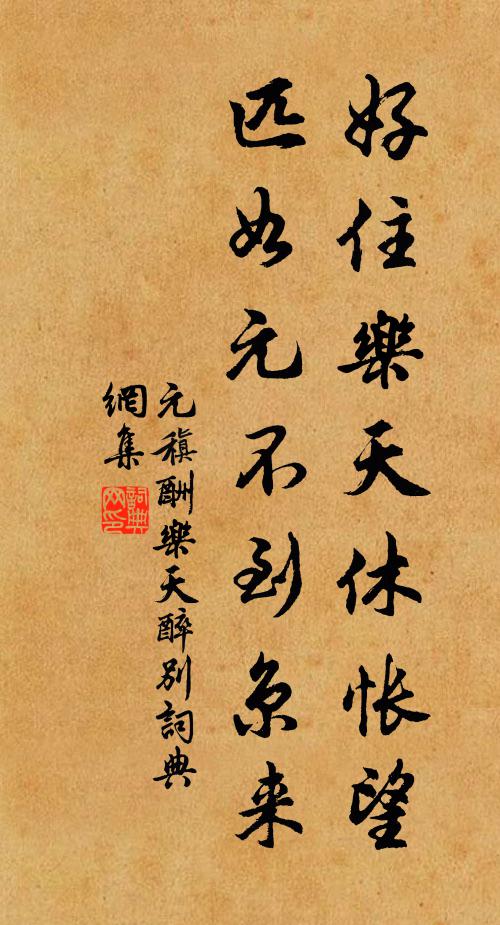 好住樂天休悵望
匹如元不到京来
元稹酬樂天醉別詞典
網集
詞典
网印